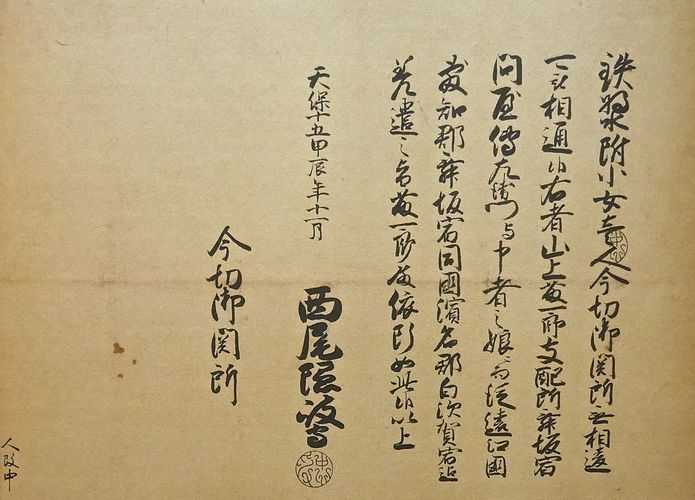 鉄漿附小女壱人今切御関所無相違
可被相通候右者山上藤一郎支配所舞坂宿
問屋傳左衛門与申者之娘ニ而従遠江國
敷知郡舞坂宿同國濱名郡白須賀宿迄
差遣之旨藤一郎依断如此候以上
天保十五甲辰年十一月
西尾隠岐
今切御関所
人改中